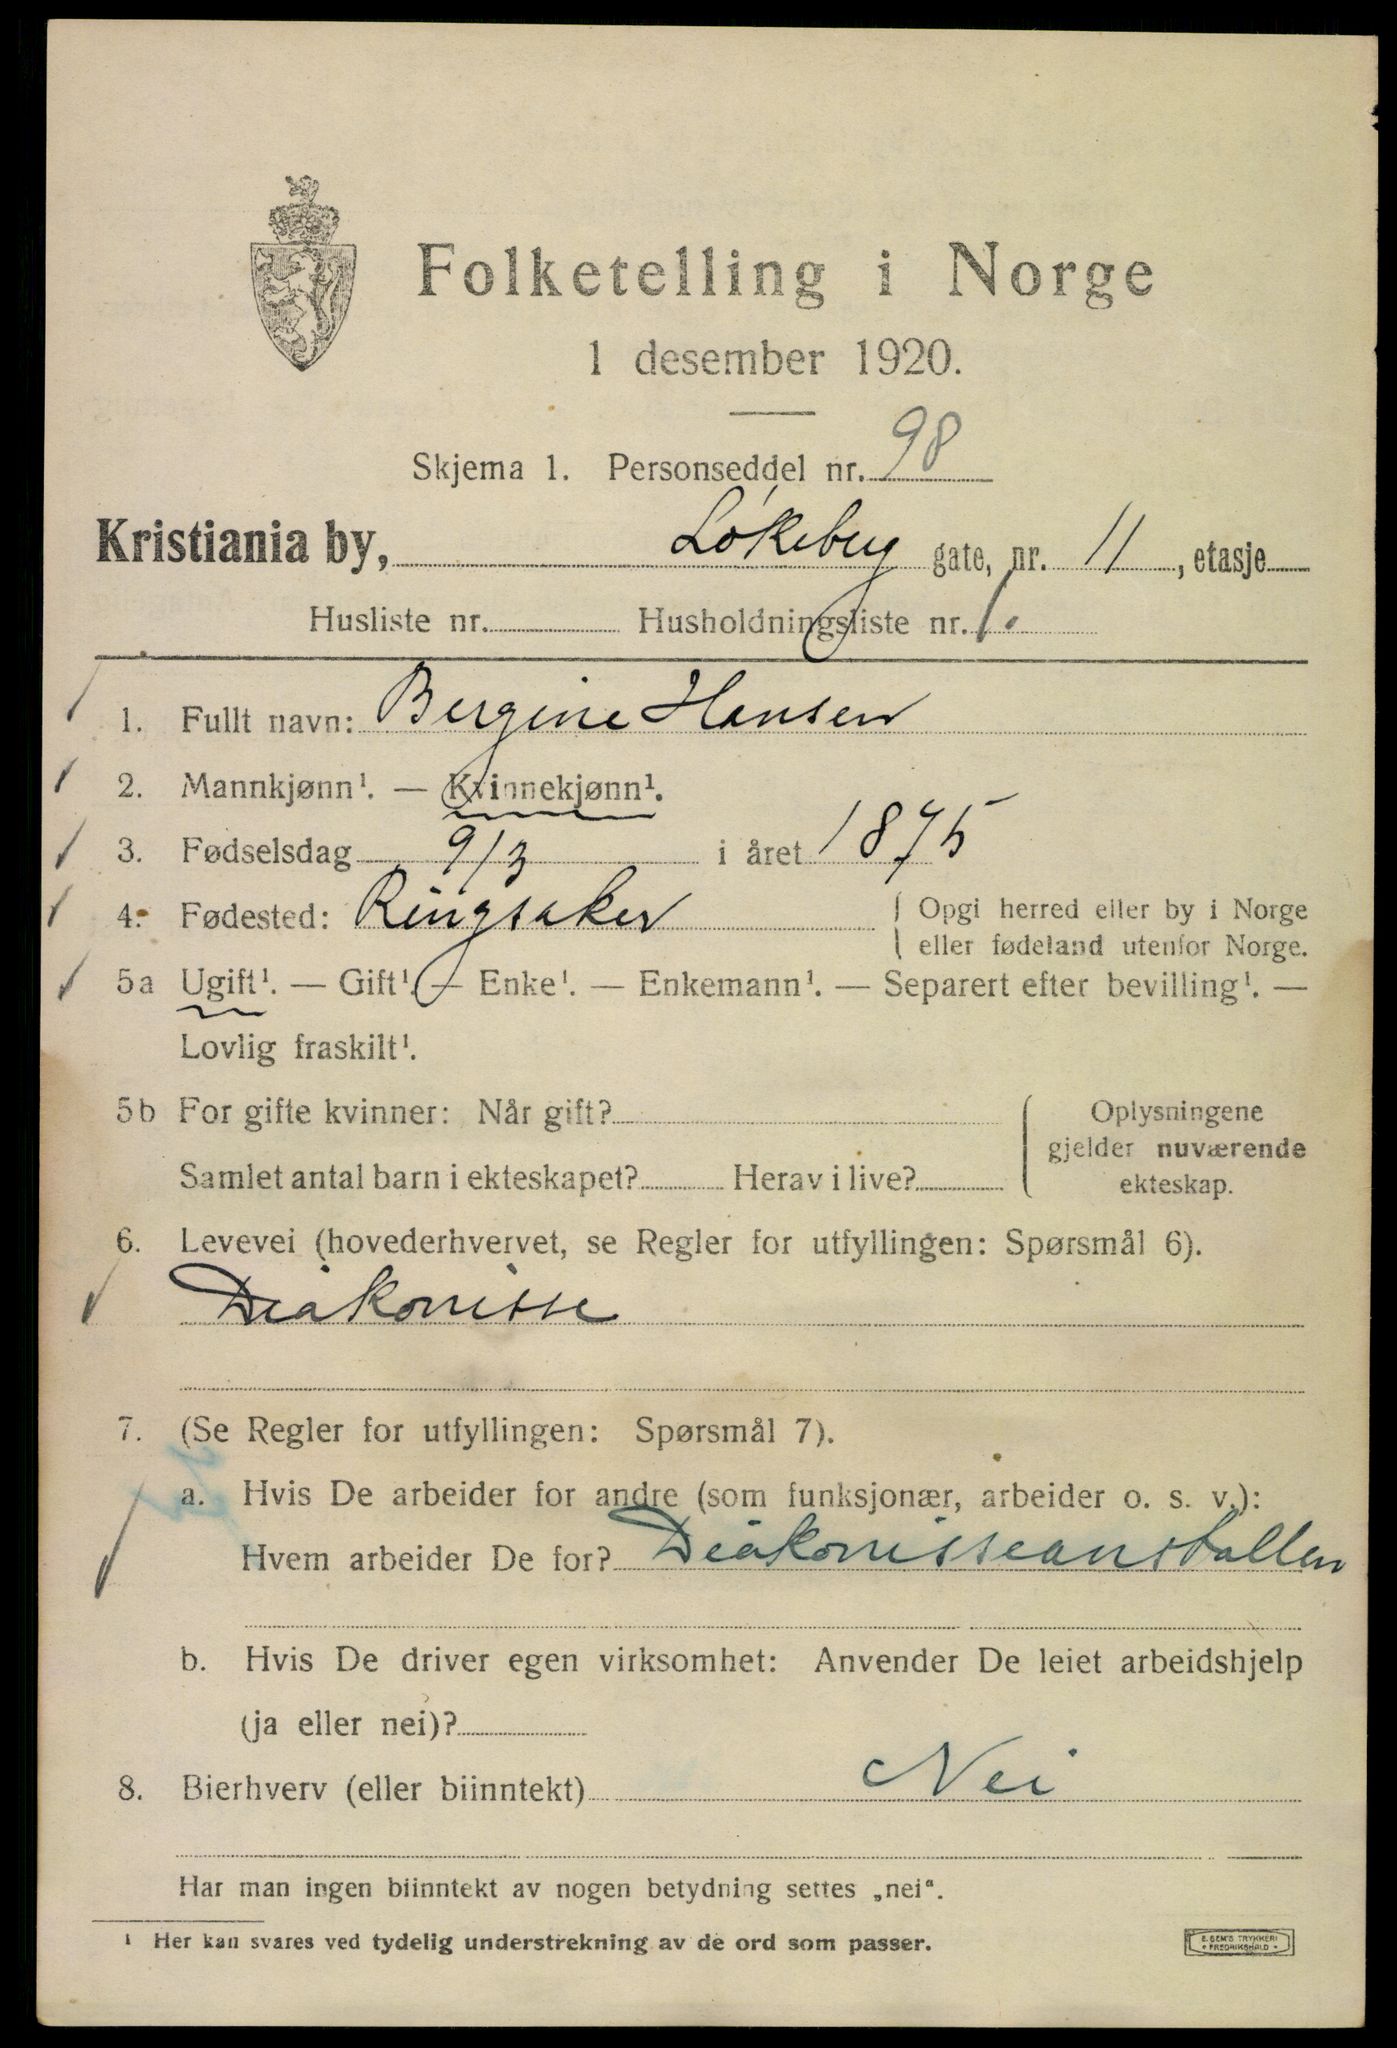 Folketelling i Norge
1 desember 1920.
Skjema 1. Personseddel nr. 98
Kristiania by, Løkeberg gate, nr. 11, etasje
Husliste nr. Husholdningsliste nr. 1.
1. Fullt navn: Bergine Hansen
2. Mannkjønn¹. — Kvinnekjønn¹.
3. Fødselsdag 9/3 i året 1875
4. Fødested: Ringsaker
Opgi herred eller by i Norge
eller fødeland utenfor Norge.
5a Ugift¹. — Gift¹. — Enke¹. — Enkemann¹. — Separert efter bevilling¹. —
Lovlig fraskilt¹.
5b For gifte kvinner: Når gift?
Samlet antal barn i ekteskapet? Herav i live?
Oplysningene
gjelder nuværende
ekteskap.
6. Levevei (hovederhvervet, se Regler for utfyllingen: Spørsmål 6).
Diakonisse
7. (Se Regler for utfyllingen: Spørsmål 7).
a. Hvis De arbeider for andre (som funksjonær, arbeider o. s. v.):
Hvem arbeider De for? Diakonisseanstalten
b. Hvis De driver egen virksomhet: Anvender De leiet arbeidshjelp
(ja eller nei)?
8. Bierhverv (eller biinntekt) Nei
Har man ingen biinntekt av nogen betydning settes „nei“.
¹ Her kan svares ved tydelig understrekning av de ord som passer.
E. SEM'S TRYKKERI
• FREDRIKSHALD •